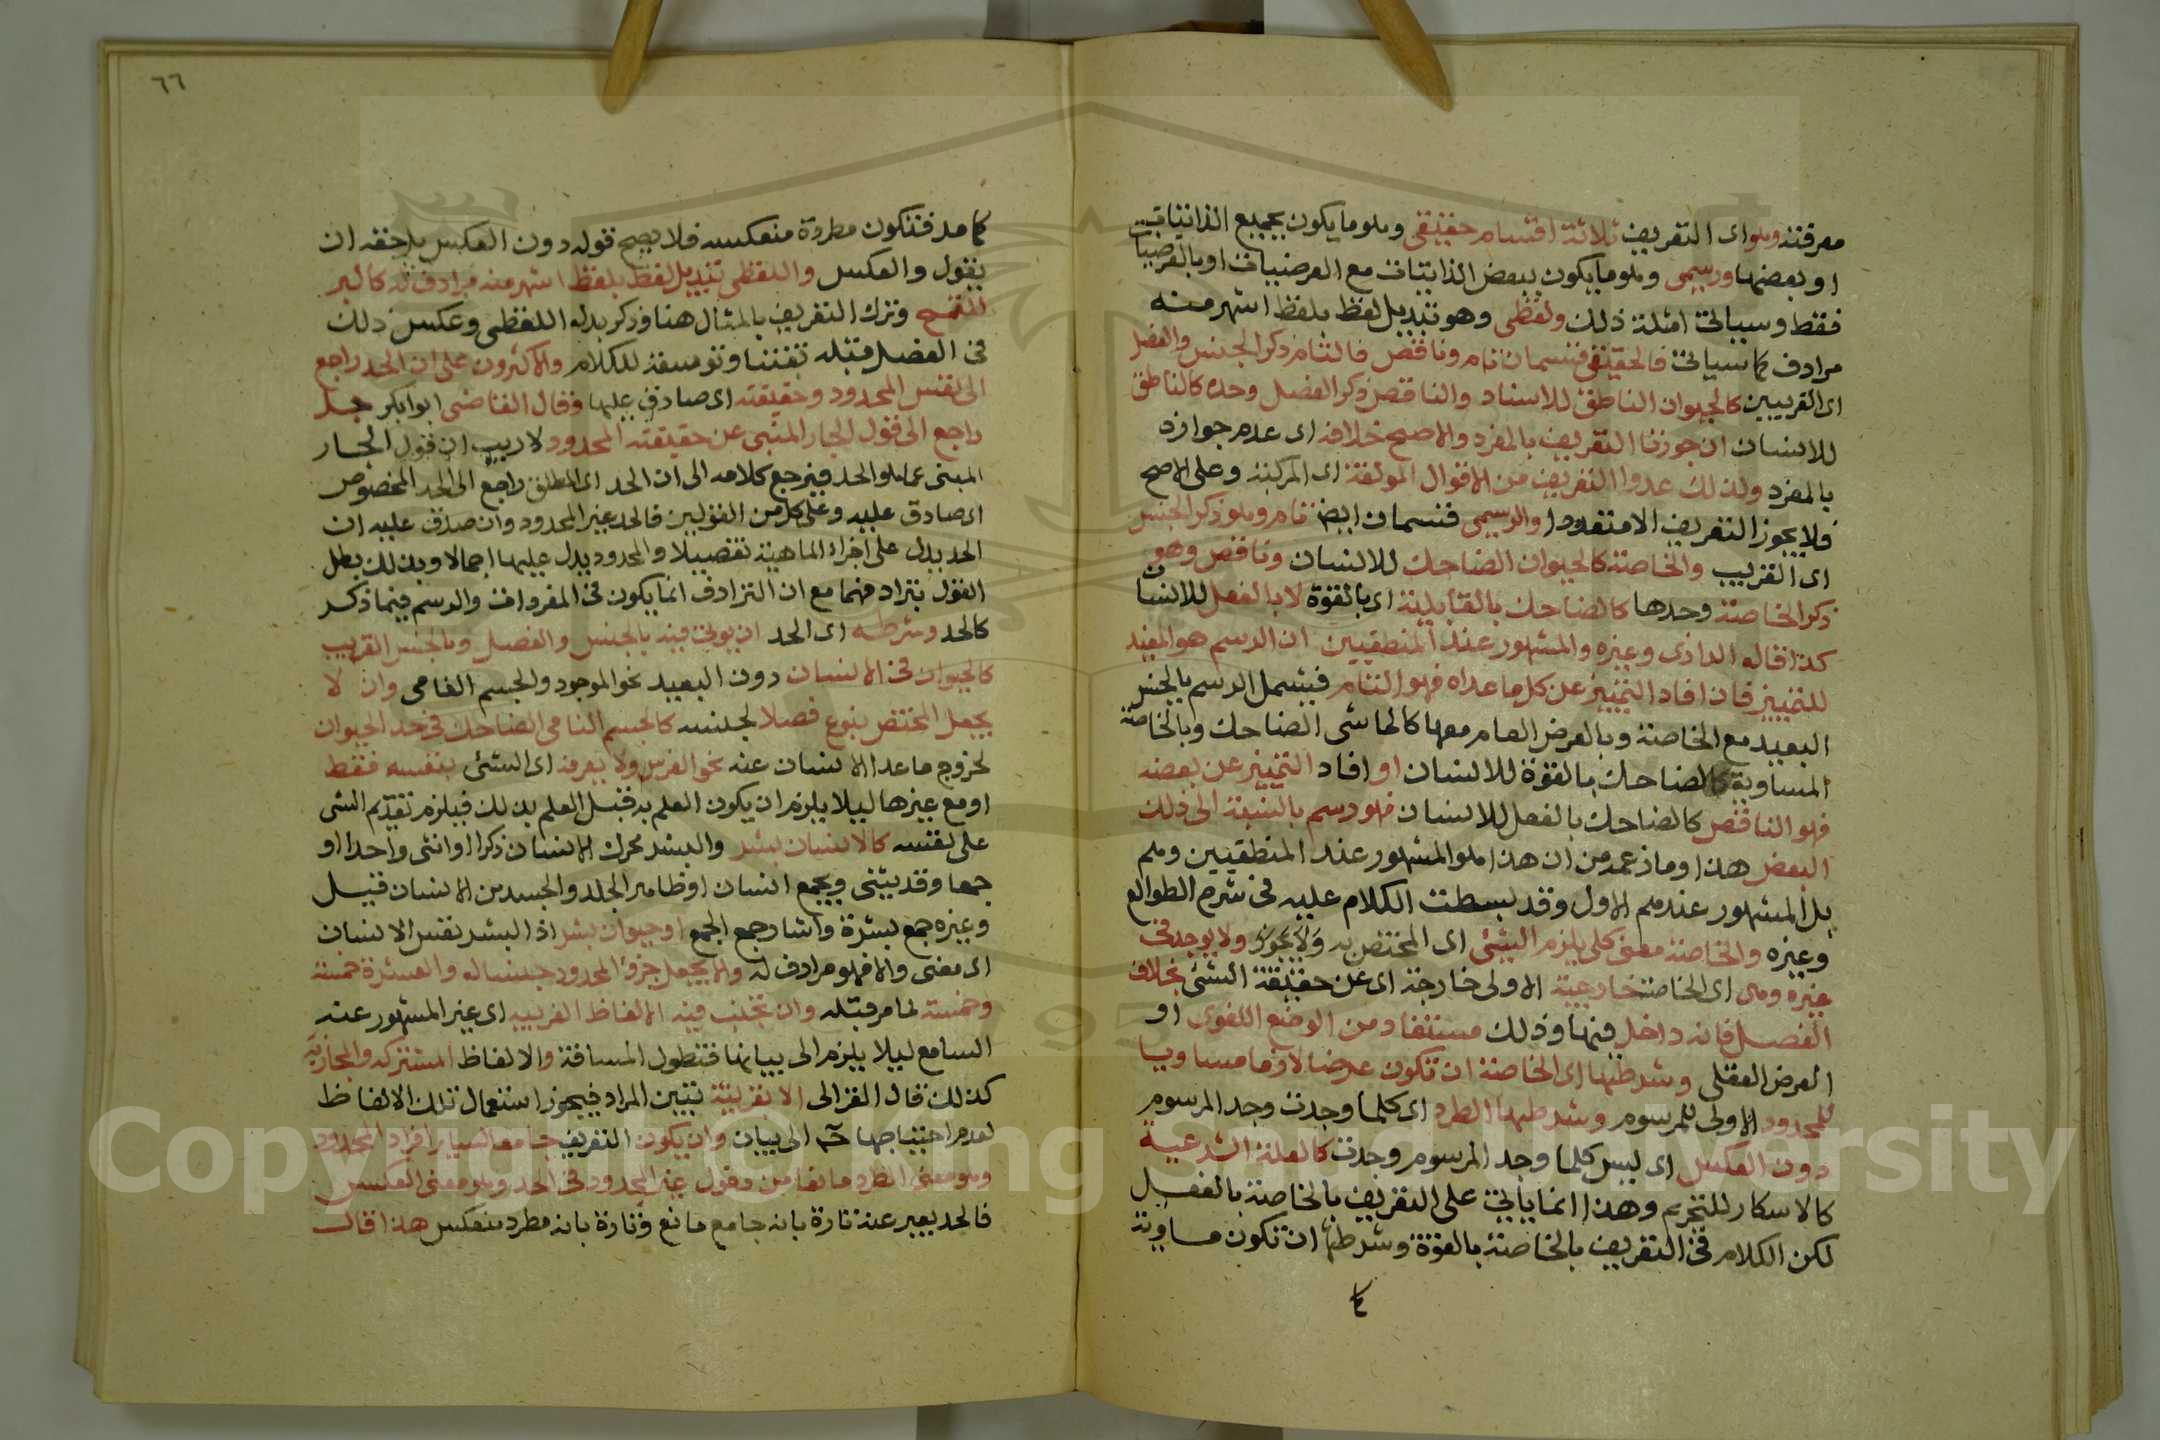 معرفته وهو اى التعريف ثلاثة اقسام حقيقى وهو ما يكون بجميع الذاتيات
او بعضها ورسمى وهو ما يكون ببعض الذاتيات مع العرضيات او بالعرضيات
فقط وسياتى امثلة ذلك ولفظى وهو تبديل لفظ بلفظ اشهر منه
مرادف كما سياتى فالحقيقى قسمان تام وناقص فالتام ذكر الجنس والفصل
اى القريبين كالحيوان الناطق للانسان والناقص ذكر الفصل وحده كالناطق
للانسان ان جوزنا التعريف بالمفرد والاصح خلافه اى عدم جوازه
بالمفرد ولذلك عدوا التعريف من الاقوال المولفة اى المركبة وعلى الاصح
فلا يجوز التعريف الا متعددا والرسمى قسمان ايض تام وهو ذكر الجنس
اى القريب والخاصة كالحيوان الضاحك للانسان وناقص وهو
ذكر الخاصة وحدها كالضاحك بالقابلية اى بالقوة لا بالفعل للانسان
كذا قاله الرازى وغيره والمشهور عند المنطقيين ان الرسم هو المفيد
للتمييز فان افاد التمييز عن كل ما عداه فهو التام فيشمل الرسم بالجنس
البعيد مع الخاصة وبالعرض العام معها كالماشى الضاحك وبالخاصة
المساوية كالضاحك بالقوة للانسان او افاد التمييز عن بعضه
فهو الناقص كالضاحك بالفعل للانسان فهو رسم بالنسبة الى ذلك
البعض هذا وما زعمه من ان هذا هو المشهور عند المنطقيين وهم
بل المشهور عندهم الاول وقد بسطت الكلام عليه فى شرح الطوالع
وغيره والخاصة معنى كلى يلزم الشئ اى المختص به ولا يوجد فى
غيره وهى اى الخاصة خارجية الاولى خارجة اى عن حقيقة الشئ بخلاف
الفصل فانه داخل فيها وذلك مستفاد من الوضع اللغوى او
العرض العقلى وشرطها اى الخاصة ان تكون عرضا لازما مساويا
للمحدود الاولى للمرسوم وشرطها الطرد اى كلما وجدت وجد المرسوم
دون العكس اى ليس كلما وجد المرسوم وجدت كالعلة الشرعية
كالاسكار للتحريم وهذا انما ياتى على التعريف بالخاصة بالفعل
لكن الكلام فى التعريف بالخاصة بالقوة وشرطها ان تكون مساوية
كما
٦٦
كما مر فتكون مطردة منعكسه فلا يصح قوله دون العكس بل حقه ان
يقول والعكس واللفظى تبديل لفظ بلفظ اشهر منه مرادف له كالبر
للقمح وترك التعريف بالمثال هنا وذكر بدله اللفظى وعكس ذلك
فى الفصل قبله تفننا وتوسعة للكلام والاكثرون على ان الحد راجع
الى نفس المحدود وحقيقته اى صادق عليها وقال القاضى ابوابكر حد
راجع الى قول الحاد المنبى عن حقيقته المحدود لا ريب ان قول الحاد
المبنى عما هو الحد فيرجع كلامه الى ان الحد اى المطلق راجع الى الحد المخصوص
اى صادق عليه وعلى كل من القولين فالحد غير المحدود وان صدق عليه ان
الحد يدل على اجزاء الماهية تفصيلا والمحدود يدل عليها اجمالا وبذلك بطل
القول بترادفهما مع ان الترادف انما يكون فى المفردات والرسم فيما ذكر
كالحد وشرطه اى الحد ان يوتى فيه بالجنس والفصل وبالجنس القريب
كالحيوان فى الانسان دون البعيد نحو الموجود والجسم النامى وان لا
يجعل المختص بنوع فصلا لجنسه كالجسم النامى الضاحك فى حد الحيوان
لخروج ما عدا الانسان عنه نحو الفرس ولا يعرف اى الشئ بنفسه فقط
او مع غيرها ليلا يلزم ان يكون العلم به قبل العلم بذلك فيلزم تقديم الشى
على نفسه كالانسان بشر والبشر محرك الانسان ذكرا او انثى واحدا او
جمعا وقد يثنى ويجمع انسان او ظاهر الجلد والجسد من الانسان قيل
وغيره جمع بشرة وابشار جمع الجمع او حيوان بشر اذ البشر نفس الانسان
اى معنى والا فهو مرادف له ولا يجعل جزؤ المحدود جنسا له والعشرة خمسة
وخمسة لما مر قبله وان تجتنب فيه الالفاظ الغريبه اى غير المشهور عند
السامع ليلا يلزم الى بيانها فتطول المسافة والالفاظ المشتركه والمجازية
كذلك قال الغزالى الا بقرينة تبين المراد فيجوز استعمال تلك الالفاظ
لعدم احتياجها ح الى بيان وان يكون التعريف جامعا لساير افراد المحدود
وهو معنى الطرد مانعا من دخول غير المحدود فى الحد وهو معنى العكس
فالحد يعبر عنه تارة بانه جامع مانع وتارة بانه مطرد منعكس هذا قال
Copyright © King Saud University
1957